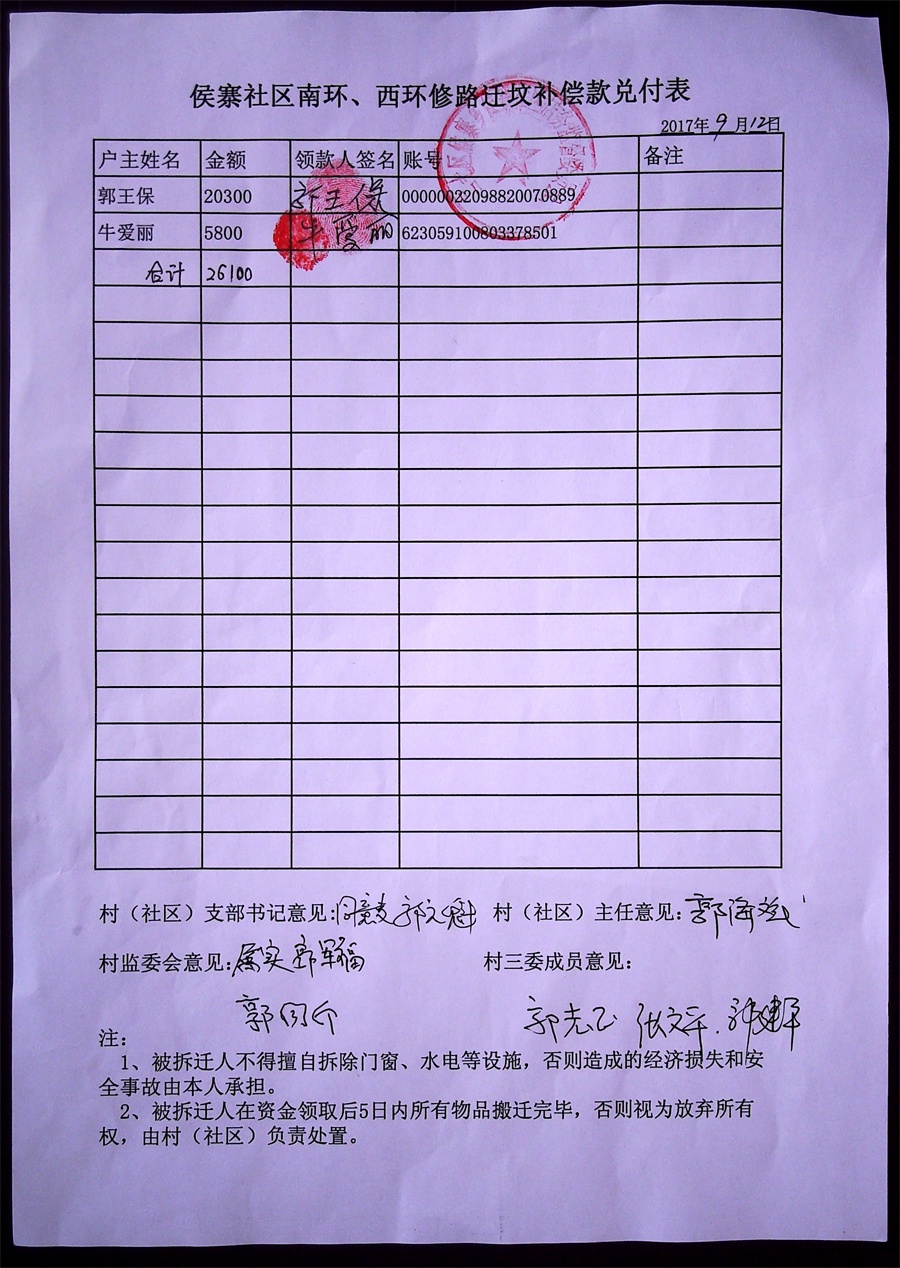 侯寨社区南环、西环修路迁坟补偿款兑付表
2017年9月12日
户主姓名 金额 领款人签名 账号 备注
郭王保 20300 郭王保 00000022098820070889
牛爱丽 5800 牛爱丽 623059100803378501
合计 26100
村（社区）支部书记意见:同意 村（社区）主任意见:郭海
村监委会意见:属实 郭军福 村三委成员意见:
郭 郭光正
注:
1、被拆迁人不得擅自拆除门窗、水电等设施，否则造成的经济损失和安
全事故由本人承担。
2、被拆迁人在资金领取后5日内所有物品搬迁完毕，否则视为放弃所有
权，由村（社区）负责处置。